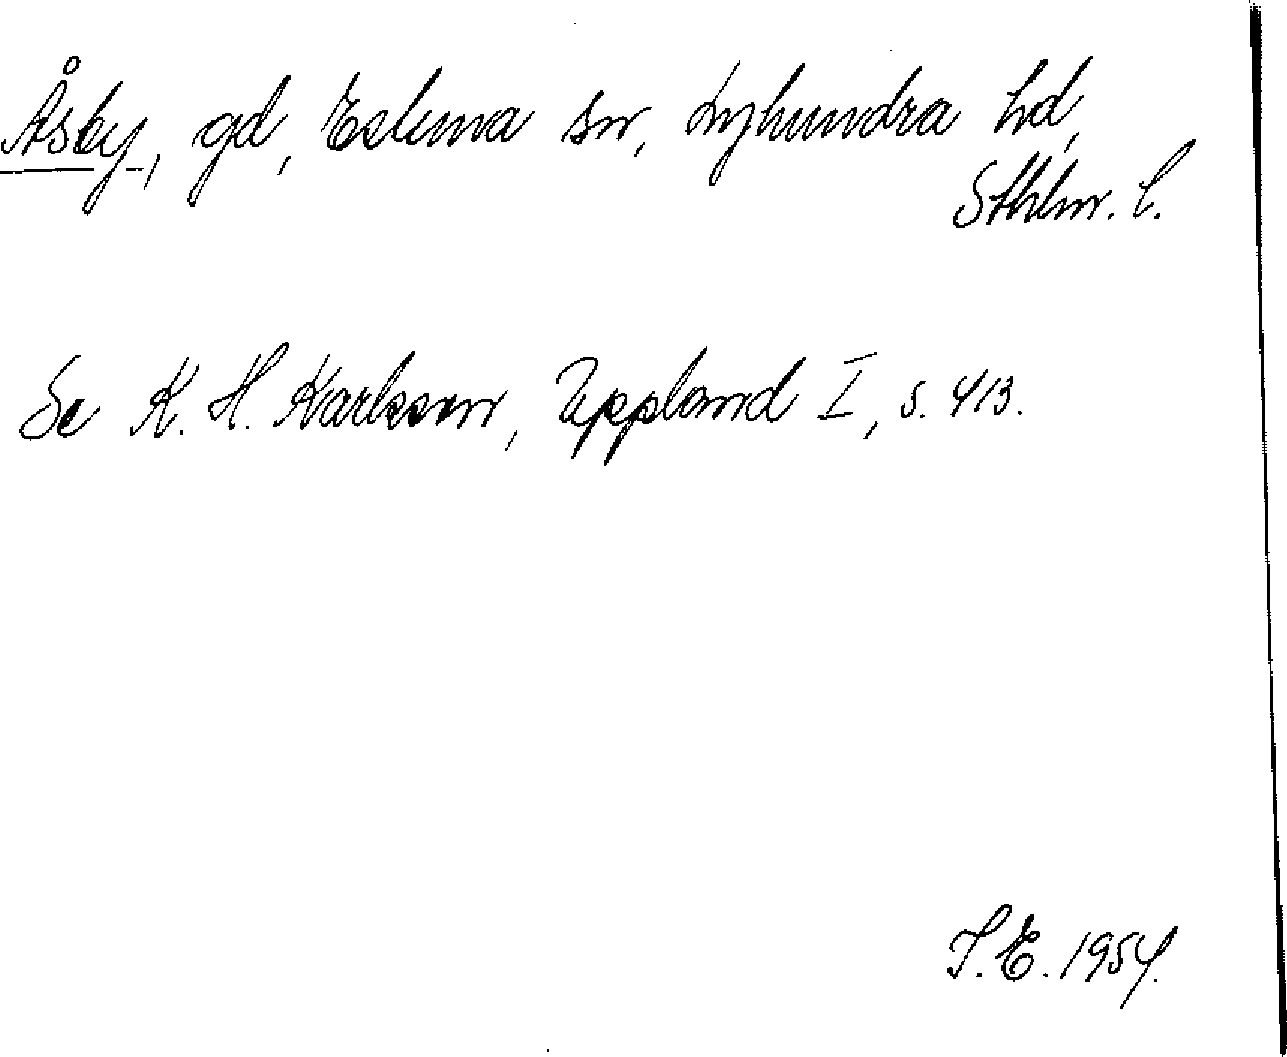 Åsby, gd, Estuna sn, Lyhundra hd,
Sthlm. l.
Se K. H. Karlsson, Uppland I, s. 413.
I.E. 1954.